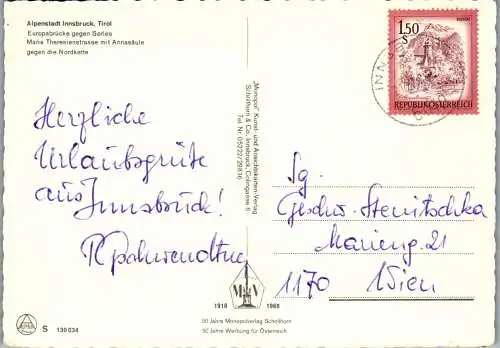 Alpenstadt Innsbruck, Tirol
Europabrücke gegen Serles
Maria Theresienstrasse mit Annasäule
gegen die Nordkette
1.50
S
REPUBLIK ÖSTERREICH
INN
Herzliche
Urlaubsgrüße
aus
Innsbruck!
"Monopol" Kunst- und Ansichtskarten-Verlag
Schöllhorn & Co. Innsbruck, Colingasse 6
Tel. Nr. 05222/29836
Sg.
Geschw. Stenitschka
Marieng. 21
1170 Wien
1918 1968
50 Jahre Monopolverlag Schöllhorn
50 Jahre Werbung für Österreich
S 130 034